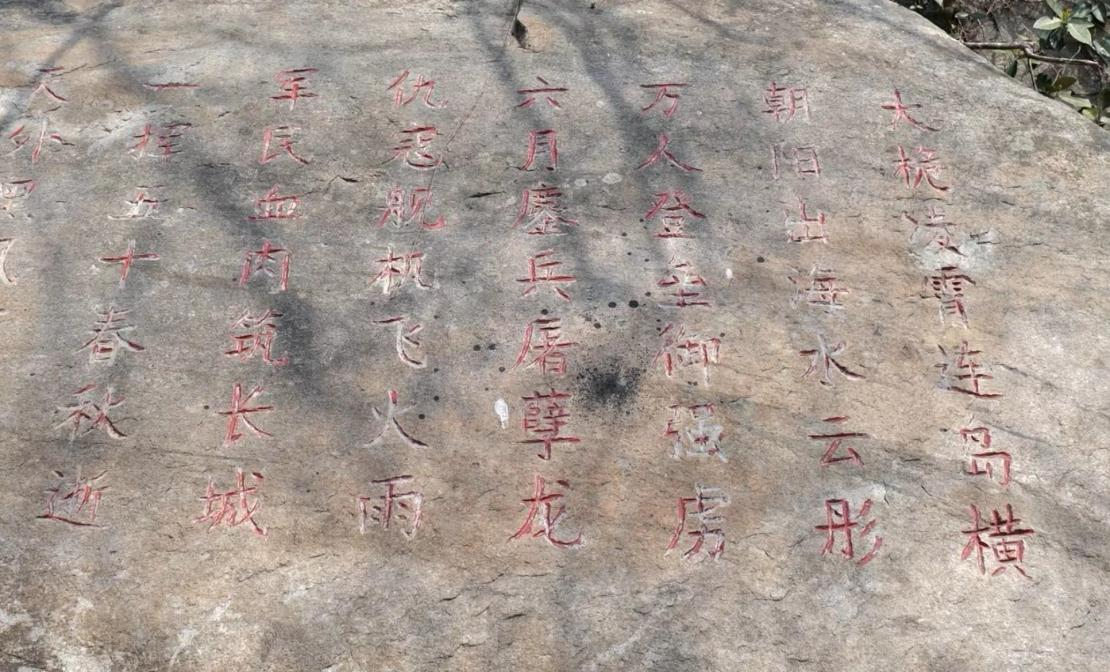 大桅凌霄连岛横
朝阳山海水云彤
万人登垒御强虏
六月鏖兵屠孽龙
仇寇舰机飞火雨
军民血肉筑长城
一挥五十春秋逝
天外